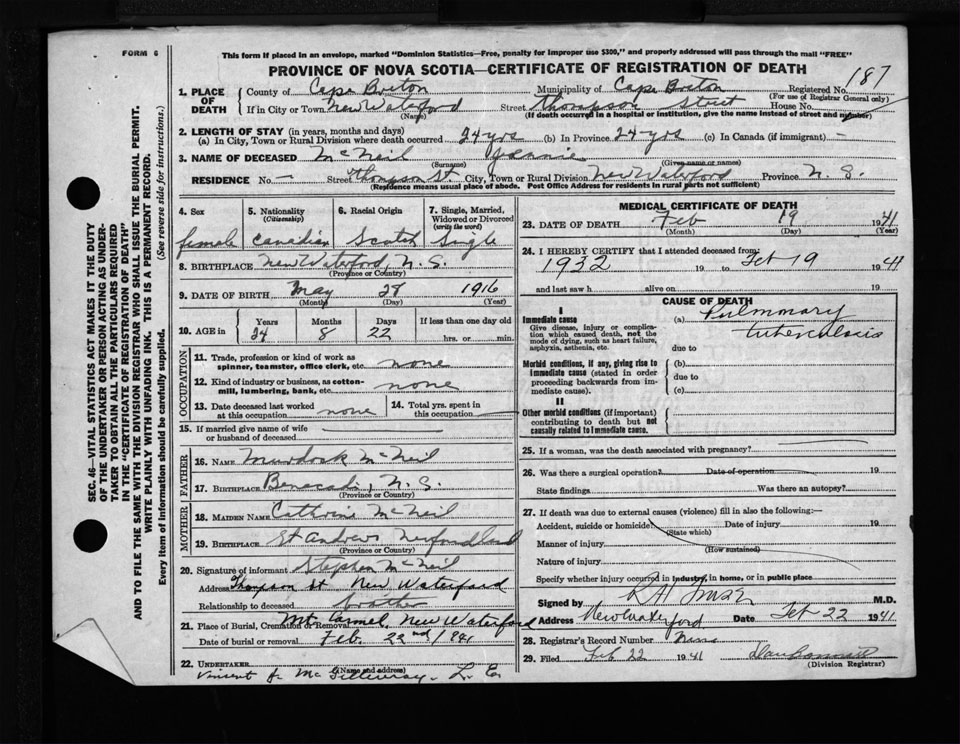 FORM 6
This form if placed in an envelope, marked "Dominion Statistics—Free, penalty for improper use $300," and properly addressed will pass through the mail "FREE"
PROVINCE OF NOVA SCOTIA—CERTIFICATE OF REGISTRATION OF DEATH
187
1. PLACE OF DEATH
County of Cape Breton Municipality of Cape Breton Registered No.
(For use of Registrar General only)
If in City or Town New Waterford Street Thompson Street House No.
(Name) (If death occurred in a hospital or institution, give the name instead of street and number)
2. LENGTH OF STAY (in years, months and days)
(a) In City, Town or Rural Division where death occurred 24 yrs (b) In Province 24 yrs (c) In Canada (if immigrant) —
3. NAME OF DECEASED McNeil Jennie
(Surname) (Given name or names)
RESIDENCE No. — Street Thompson St. City, Town or Rural Division New Waterford Province N. S.
(Residence means usual place of abode. Post Office Address for residents in rural parts not sufficient)
4. Sex 5. Nationality (Citizenship) 6. Racial Origin 7. Single, Married, Widowed or Divorced (write the word)
female Canadian Scotch Single
8. BIRTHPLACE New Waterford, N. S.
(Province or Country)
9. DATE OF BIRTH May 28 1916
(Month) (Day) (Year)
10. AGE in Years Months Days If less than one day old
24 8 22 hrs. or min.
OCCUPATION
11. Trade, profession or kind of work as spinner, teamster, office clerk, etc. none
12. Kind of industry or business, as cotton-mill, lumbering, bank, etc. none
13. Date deceased last worked at this occupation none 14. Total yrs. spent in this occupation —
15. If married give name of wife or husband of deceased —
FATHER
16. NAME Murdock McNeil
17. BIRTHPLACE N. S.
(Province or Country)
MOTHER
18. MAIDEN NAME Cathrine McNeil
19. BIRTHPLACE St Andrews Newfoundland
(Province or Country)
20. Signature of informant Stephen McNeil
Address Thompson St New Waterford
Relationship to deceased brother
21. Place of Burial, Cremation or Removal Mt Carmel, New Waterford
Date of burial or removal Feb. 22nd 1941
22. UNDERTAKER
(Name and address)
Vincent J. McGillivray. L. E.
MEDICAL CERTIFICATE OF DEATH
23. DATE OF DEATH Feb 19 1941
(Month) (Day) (Year)
24. I HEREBY CERTIFY that I attended deceased from:
1932 19 to Feb 19 1941
and last saw h alive on 19
CAUSE OF DEATH
I
Immediate cause (a) Pulmonary tuberculosis
Give disease, injury or complication which caused death, not the mode of dying, such as heart failure, asphyxia, asthenia, etc.
due to
Morbid conditions, if any, giving rise to immediate cause (stated in order proceeding backwards from immediate cause).
(b)
due to
(c)
II
Other morbid conditions (if important) contributing to death but not causally related to immediate cause.
25. If a woman, was the death associated with pregnancy?
26. Was there a surgical operation? Date of operation 19
State findings Was there an autopsy?
27. If death was due to external causes (violence) fill in also the following:—
Accident, suicide or homicide Date of injury 19
(State which)
Manner of injury
(How sustained)
Nature of injury
Specify whether injury occurred in industry, in home, or in public place
Signed by M.D.
Address New Waterford Date Feb 22 1941
28. Registrar's Record Number
29. Filed Feb 22 1941
(Division Registrar)
SEC. 46—VITAL STATISTICS ACT MAKES IT THE DUTY
OF THE UNDERTAKER OR PERSON ACTING AS UNDER-
TAKER TO OBTAIN ALL THE PARTICULARS REQUIRED
IN THE "CERTIFICATE OF REGISTRATION OF DEATH"
AND TO FILE THE SAME WITH THE DIVISION REGISTRAR WHO SHALL ISSUE THE BURIAL PERMIT.
WRITE PLAINLY WITH UNFADING INK. THIS IS A PERMANENT RECORD.
Every item of information should be carefully supplied. (See reverse side for instructions.)